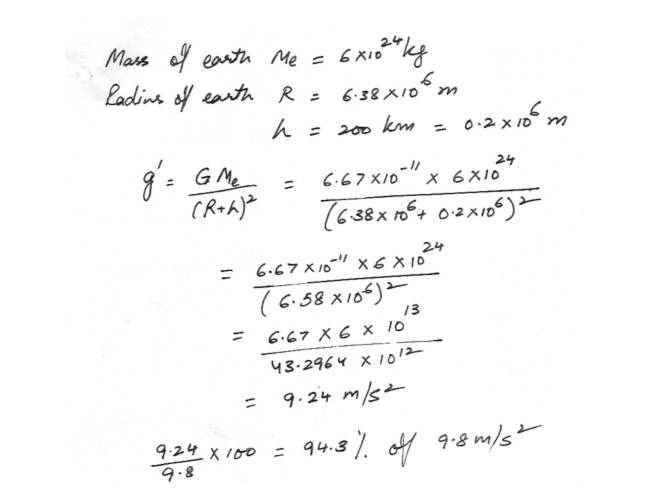 Mass of earth Me = 6×10²⁴ kg
Radius of earth R = 6.38×10⁶ m
h = 200 km = 0.2×10⁶ m
g' = G Me / (R+h)² = 6.67×10⁻¹¹ × 6×10²⁴ / (6.38×10⁶ + 0.2×10⁶)²
= 6.67×10⁻¹¹ × 6×10²⁴ / (6.58×10⁶)²
= 6.67 × 6 × 10¹³ / 43.2964 × 10¹²
= 9.24 m/s²
9.24 / 9.8 × 100 = 94.3 % of 9.8 m/s²